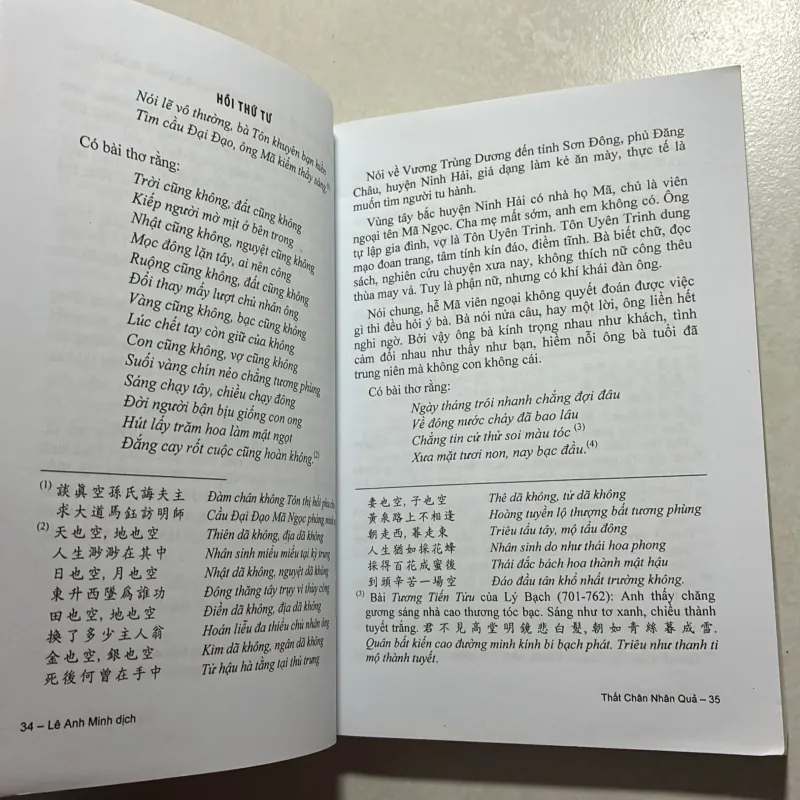 HỒI THỨ TƯ
Nói lẽ vô thường, bà Tôn khuyên bạn hiền
Tìm cầu Đại Đạo, ông Mã kiếm thầy sáng.(1)
Có bài thơ rằng:
Trời cũng không, đất cũng không
Kiếp người mờ mịt ở bên trong
Nhật cũng không, nguyệt cũng không
Mọc đông lặn tây, ai nên công
Ruộng cũng không, đất cũng không
Đổi thay mấy lượt chủ nhân ông
Vàng cũng không, bạc cũng không
Lúc chết tay còn giữ của không
Con cũng không, vợ cũng không
Suối vàng chín nẻo chẳng tương phùng
Sáng chạy tây, chiều chạy đông
Đời người bận bịu giống con ong
Hút lấy trăm hoa làm mật ngọt
Đắng cay rốt cuộc cũng hoàn không.(2)
(1) 談眞空孫氏誨夫主 Đàm chân không Tôn thị hối phu chủ
求大道馬鈺訪明師 Cầu Đại Đạo Mã Ngọc phỏng minh
(2) 天也空,地也空 Thiên dã không, địa dã không
人生渺渺在其中 Nhân sinh miểu miểu tại kỳ trung
日也空,月也空 Nhật dã không, nguyệt dã không
東升西墜爲誰功 Đông thăng tây trụy vi thùy công
田也空,地也空 Điền dã không, địa dã không
換了多少主人翁 Hoán liễu đa thiểu chủ nhân ông
金也空,銀也空 Kim dã không, ngân dã không
死後何曾在手中 Tử hậu hà tằng tại thủ trung
34 – Lê Anh Minh dịch
Nói về Vương Trùng Dương đến tỉnh Sơn Đông, phủ Đăng
Châu, huyện Ninh Hải, giả dạng làm kẻ ăn mày, thực tế là
muốn tìm người tu hành.
Vùng tây bắc huyện Ninh Hải có nhà họ Mã, chủ là viên
ngoại tên Mã Ngọc. Cha mẹ mất sớm, anh em không có. Ông
tự lập gia đình, vợ là Tôn Uyên Trinh. Tôn Uyên Trinh dung
mạo đoan trang, tâm tính kín đáo, điềm tĩnh. Bà biết chữ, đọc
sách, nghiên cứu chuyện xưa nay, không thích nữ công thêu
thùa may vá. Tuy là phận nữ, nhưng có khí khái đàn ông.
Nói chung, hễ Mã viên ngoại không quyết đoán được việc
gì thì đều hỏi ý bà. Bà nói nửa câu, hay một lời, ông liền hết
nghi ngờ. Bởi vậy ông bà kính trọng nhau như khách, tình
cảm đối nhau như thầy như bạn, hiềm nỗi ông bà tuổi đã
trung niên mà không con không cái.
Có bài thơ rằng:
Ngày tháng trôi nhanh chẳng đợi đâu
Về đông nước chảy đã bao lâu
Chẳng tin cứ thử soi màu tóc (3)
Xưa mặt tươi non, nay bạc đầu.(4)
妻也空,子也空 Thê dã không, tử dã không
黄泉路上不相逢 Hoàng tuyền lộ thượng bất tương phùng
朝走西,暮走東 Triêu tẩu tây, mộ tẩu đông
人生猶如採花蜂 Nhân sinh do như thái hoa phong
採得百花成蜜後 Thái đắc bách hoa thành mật hậu
到頭辛苦一場空 Đáo đầu tân khổ nhất trường không.
(3) Bài Tương Tiến Tửu của Lý Bạch (701-762): Anh thấy chăng
gương sáng nhà cao thương tóc bạc. Sáng như tơ xanh, chiều thành
tuyết trắng. 君不見高堂明鏡悲白髮,朝如青絲暮成雪.
Quân bất kiến cao đường minh kính bi bạch phát. Triêu như thanh ti
mộ thành tuyết.
Thất Chân Nhân Quả – 35